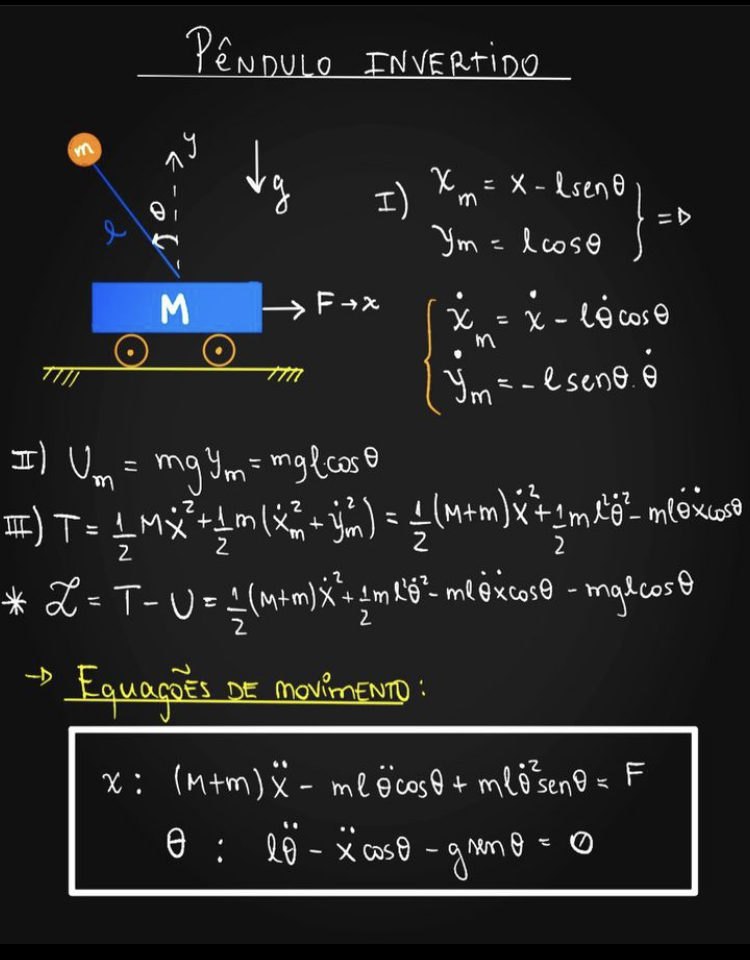 PÊNDULO INVERTIDO
m
y
g
θ
l
M
F → x
I) x_m = x - l senθ
y_m = l cosθ } ⇒
{ ẋ_m = ẋ - lθ̇ cosθ
ẏ_m = - l senθ . θ̇
II) U_m = mg y_m = mgl.cosθ
III) T = 1/2 Mẋ² + 1/2 m(ẋ_m² + ẏ_m²) = 1/2 (M+m)ẋ² + 1/2 m l²θ̇² - mlθ̇ẋcosθ
* ℒ = T - U = 1/2 (M+m)ẋ² + 1/2 m l²θ̇² - mlθ̇ẋcosθ - mglcosθ
→ EquaçõES DE MOVIMENTO:
x : (M+m)ẍ - mlθ̈cosθ + mlθ̇²senθ = F
θ : lθ̈ - ẍcosθ - g senθ = 0